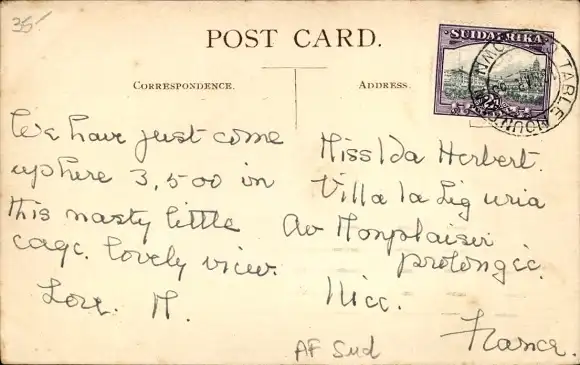 35-
POST CARD.
CORRESPONDENCE.
ADDRESS.
SUIDAFRIKA
TABLE MOUNTAIN
We have just come
up here 3,500 in
this nasty little
cage. lovely view.
Love. M.
Miss Ida Herbert.
Villa la Liguria
Av Monplaisir
prolongée.
Nice.
France.
AF Sud